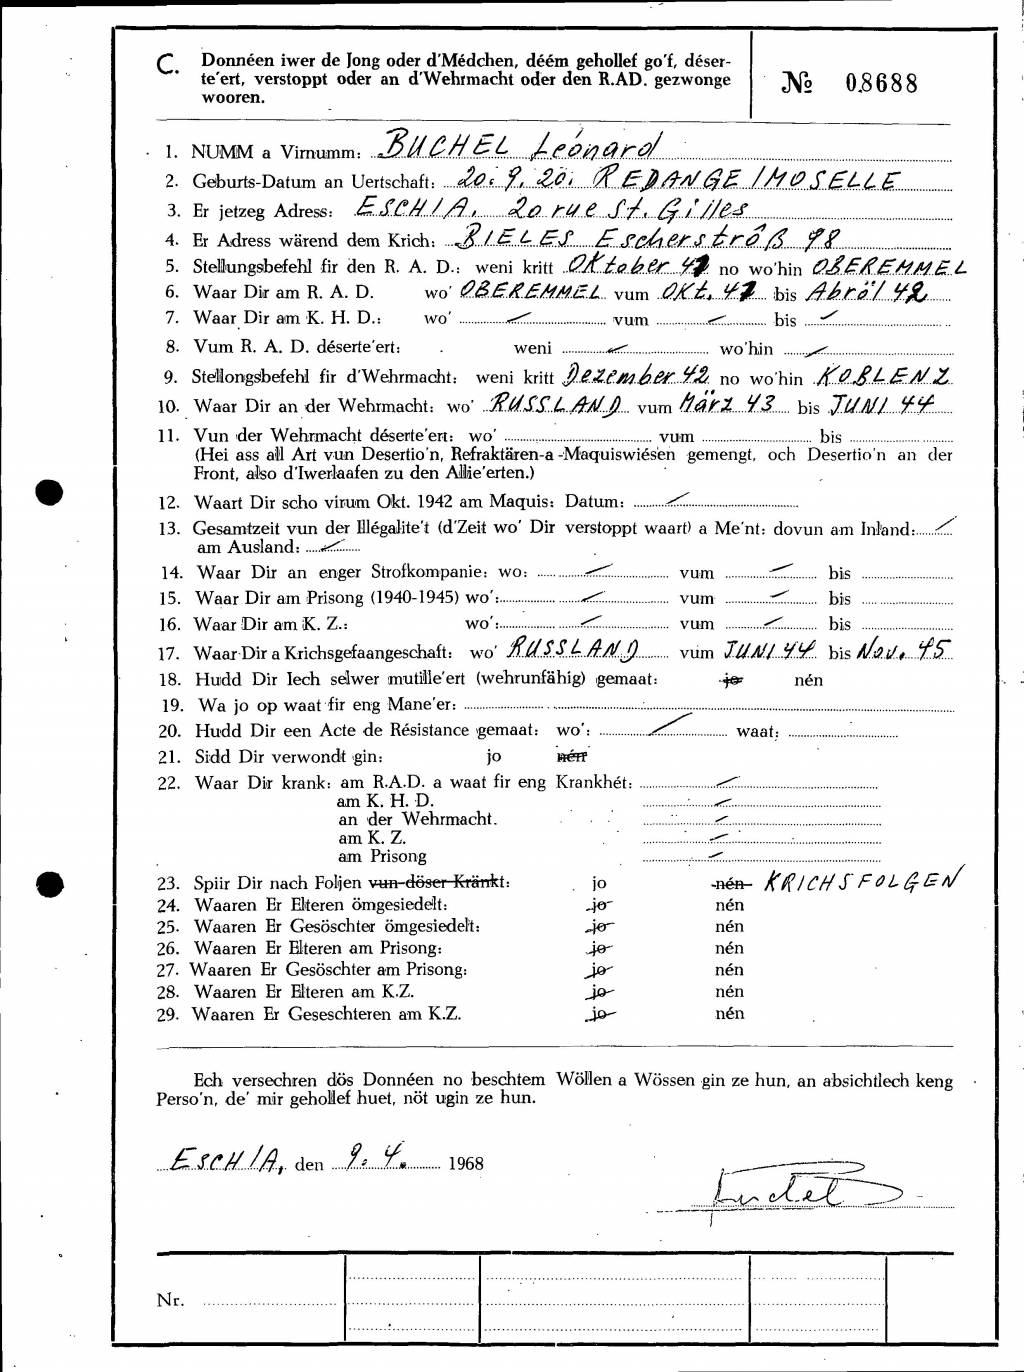 C. Donnéen iwer de Jong oder d'Médchen, déém gehollef go'f, déser-
te'ert, verstoppt oder an d'Wehrmacht oder den R.AD. gezwonge
wooren.
№ 08688
1. NUMM a Virnumm: BUCHEL Léonard
2. Geburts-Datum an Uertschaft: 20. 9. 20. REDANGE/MOSELLE
3. Er jetzeg Adress: ESCH/A. 20 rue St. Gilles
4. Er Adress wärend dem Krich: BIELES Escherströß 98
5. Stellungsbefehl fir den R. A. D.: weni kritt Oktober 41 no wo'hin OBEREMMEL
6. Waar Dir am R. A. D. wo' OBEREMMEL vum OKt. 41 bis Abröl 42
7. Waar Dir am K. H. D.: wo' vum bis
8. Vum R. A. D. déserte'ert: weni wo'hin
9. Stellongsbefehl fir d'Wehrmacht: weni kritt Dezember 42 no wo'hin KOBLENZ
10. Waar Dir an der Wehrmacht: wo' RUSSLAND vum März 43 bis JUNI 44
11. Vun der Wehrmacht déserte'ert: wo' vum bis
(Hei ass all Art vun Desertio'n, Refraktären-a -Maquiswiésen gemengt, och Desertio'n an der
Front, also d'Iwerlaafen zu den Allie'erten.)
12. Waart Dir scho virum Okt. 1942 am Maquis: Datum:
13. Gesamtzeit vun der Illégalite't (d'Zeit wo' Dir verstoppt waart) a Me'nt: dovun am Inland:
am Ausland:
14. Waar Dir an enger Strofkompanie: wo: vum bis
15. Waar Dir am Prisong (1940-1945) wo': vum bis
16. Waar Dir am K. Z.: wo': vum bis
17. Waar Dir a Krichsgefaangeschaft: wo' RUSSLAND vum JUNI 44 bis Nov. 45
18. Hudd Dir Iech selwer mutille'ert (wehrunfähig) gemaat: jo nén
19. Wa jo op waat fir eng Mane'er:
20. Hudd Dir een Acte de Résistance gemaat: wo': waat:
21. Sidd Dir verwondt gin: jo nén
22. Waar Dir krank: am R.A.D. a waat fir eng Krankhét:
am K. H. D.
an der Wehrmacht.
am K. Z.
am Prisong
23. Spiir Dir nach Foljen vun döser Kränkt: jo nén KRICHSFOLGEN
24. Waaren Er Elteren ömgesiedelt: jo nén
25. Waaren Er Gesöschter ömgesiedelt: jo nén
26. Waaren Er Elteren am Prisong: jo nén
27. Waaren Er Gesöschter am Prisong: jo nén
28. Waaren Er Elteren am K.Z. jo nén
29. Waaren Er Geseschteren am K.Z. jo nén
Ech versechren dös Donnéen no beschtem Wöllen a Wössen gin ze hun, an absichtlech keng
Perso'n, de' mir gehollef huet, nöt ugin ze hun.
ESCH/A, den 9. 4. 1968
Buchel
Nr.